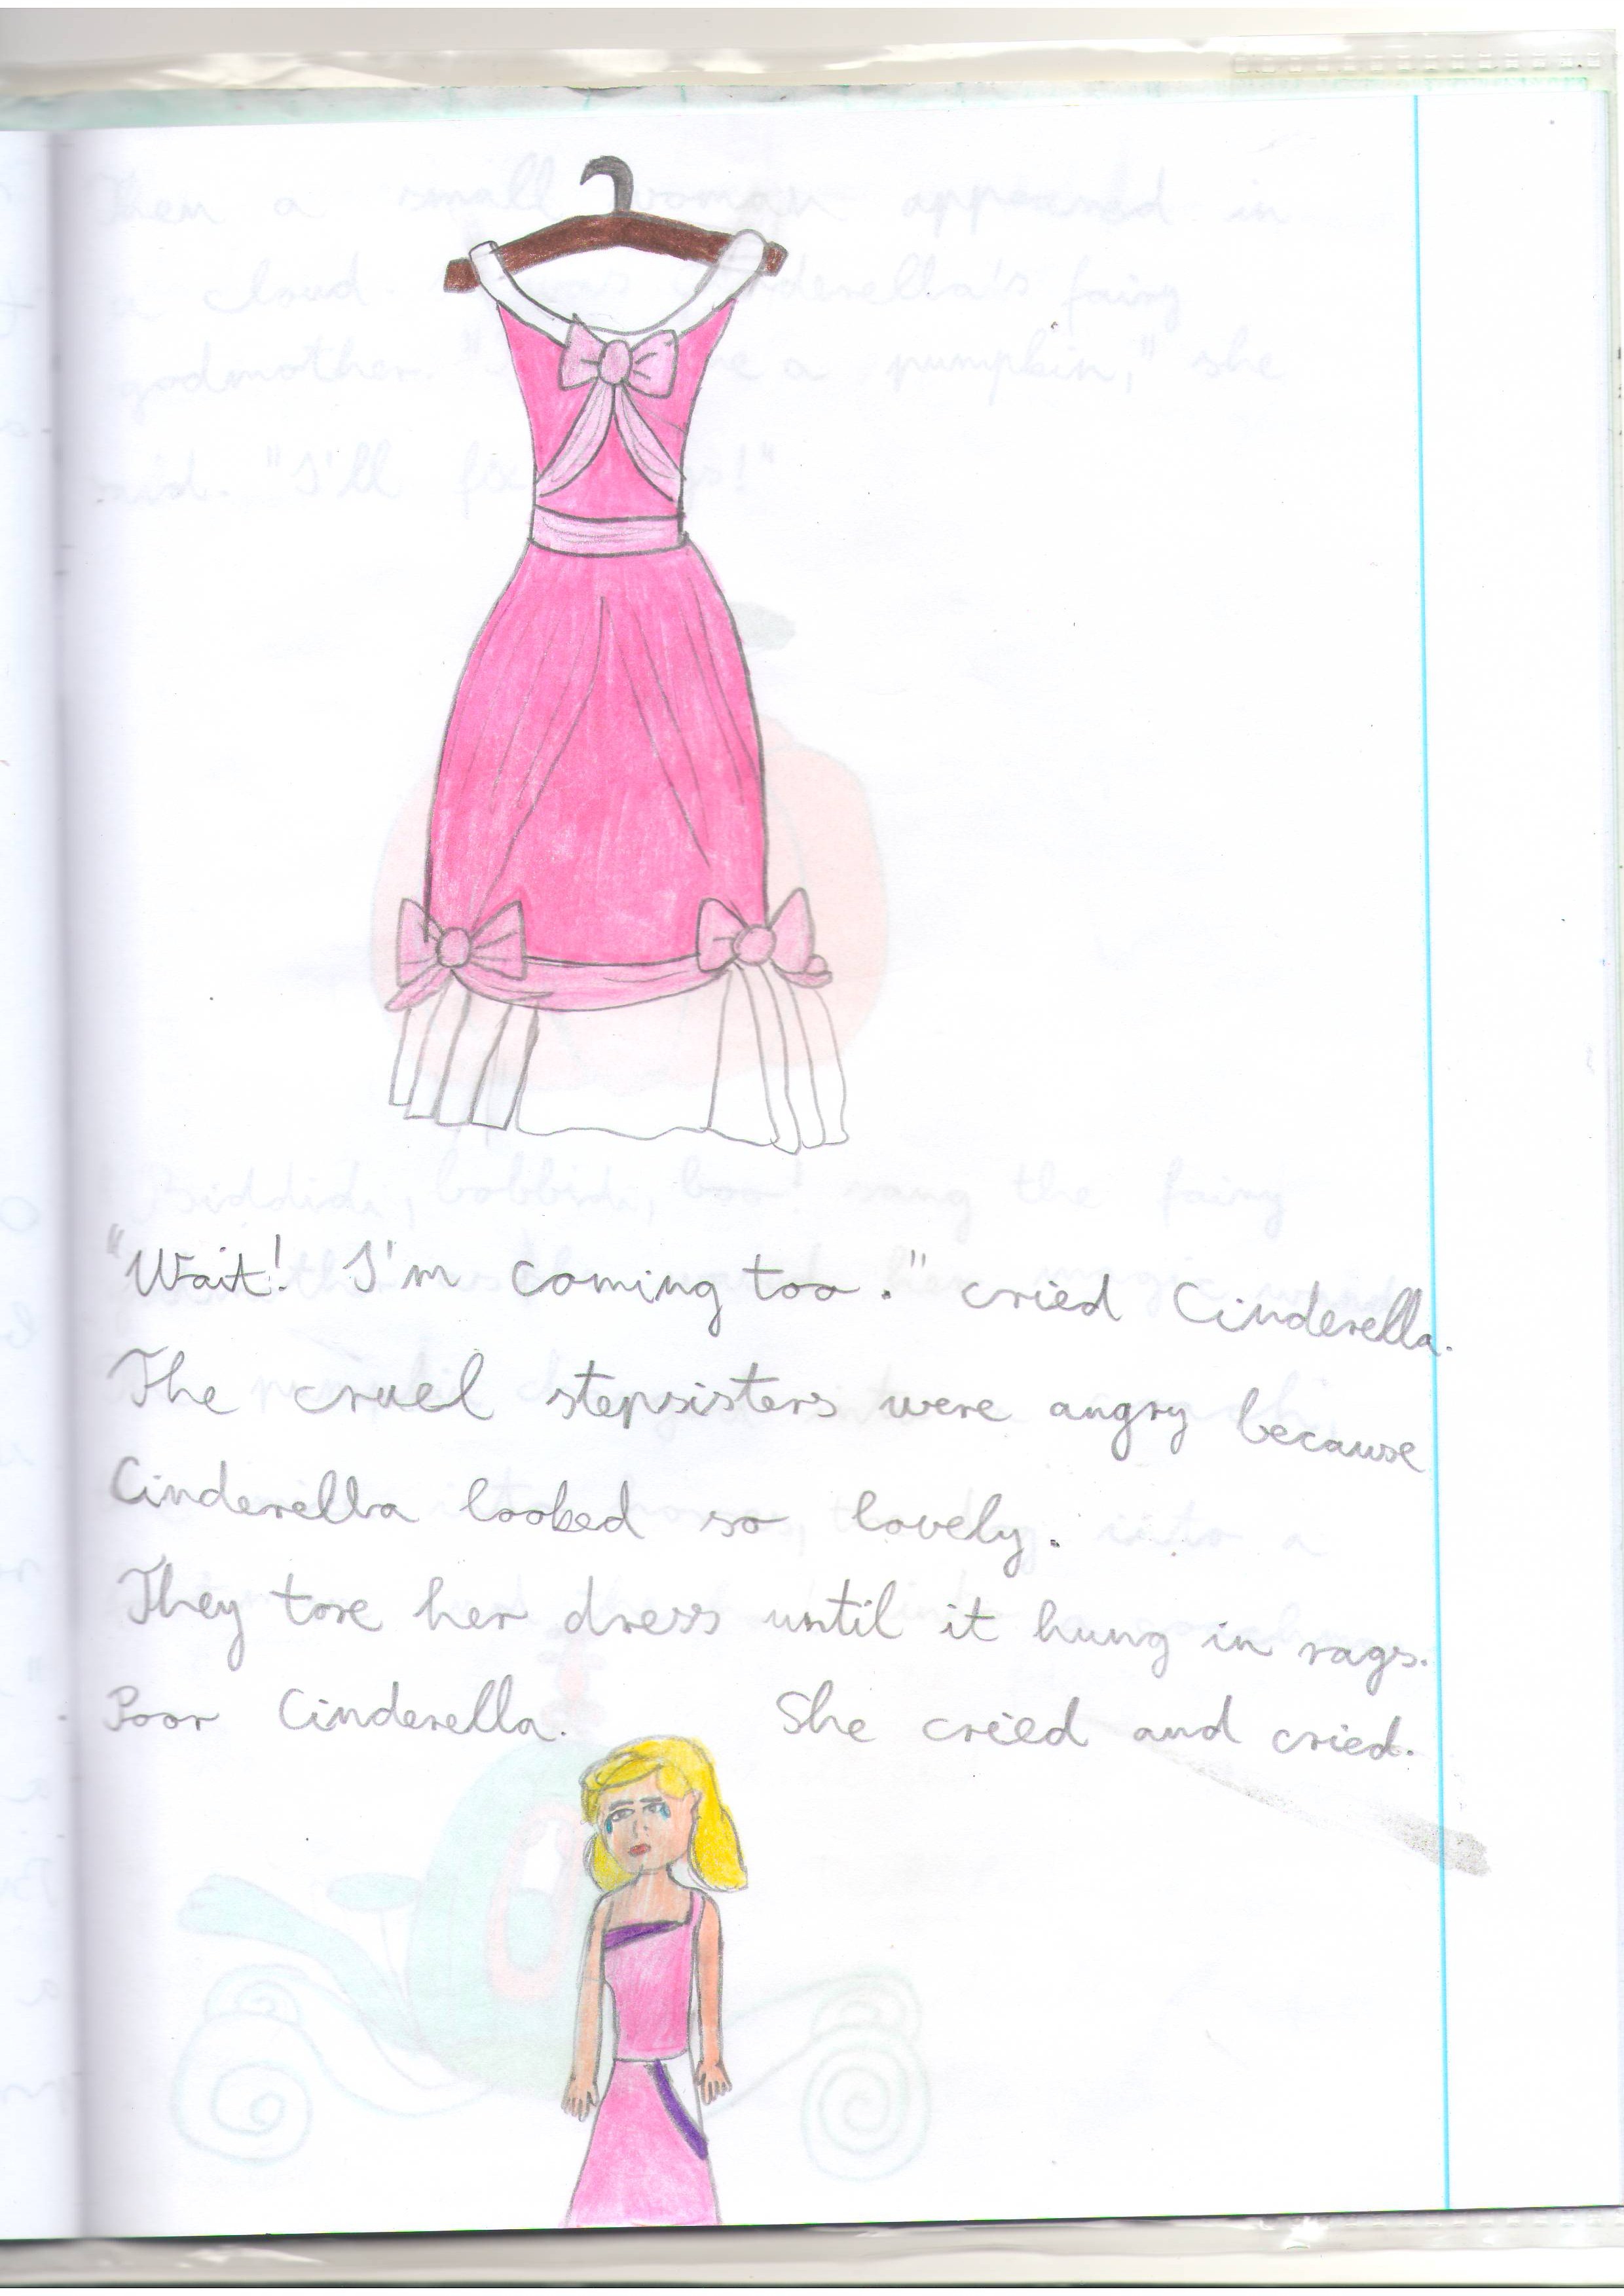 "Wait! I'm coming too." cried Cinderella.
The cruel stepsisters were angry because
Cinderella looked so lovely.
They tore her dress until it hung in rags.
Poor Cinderella. She cried and cried.